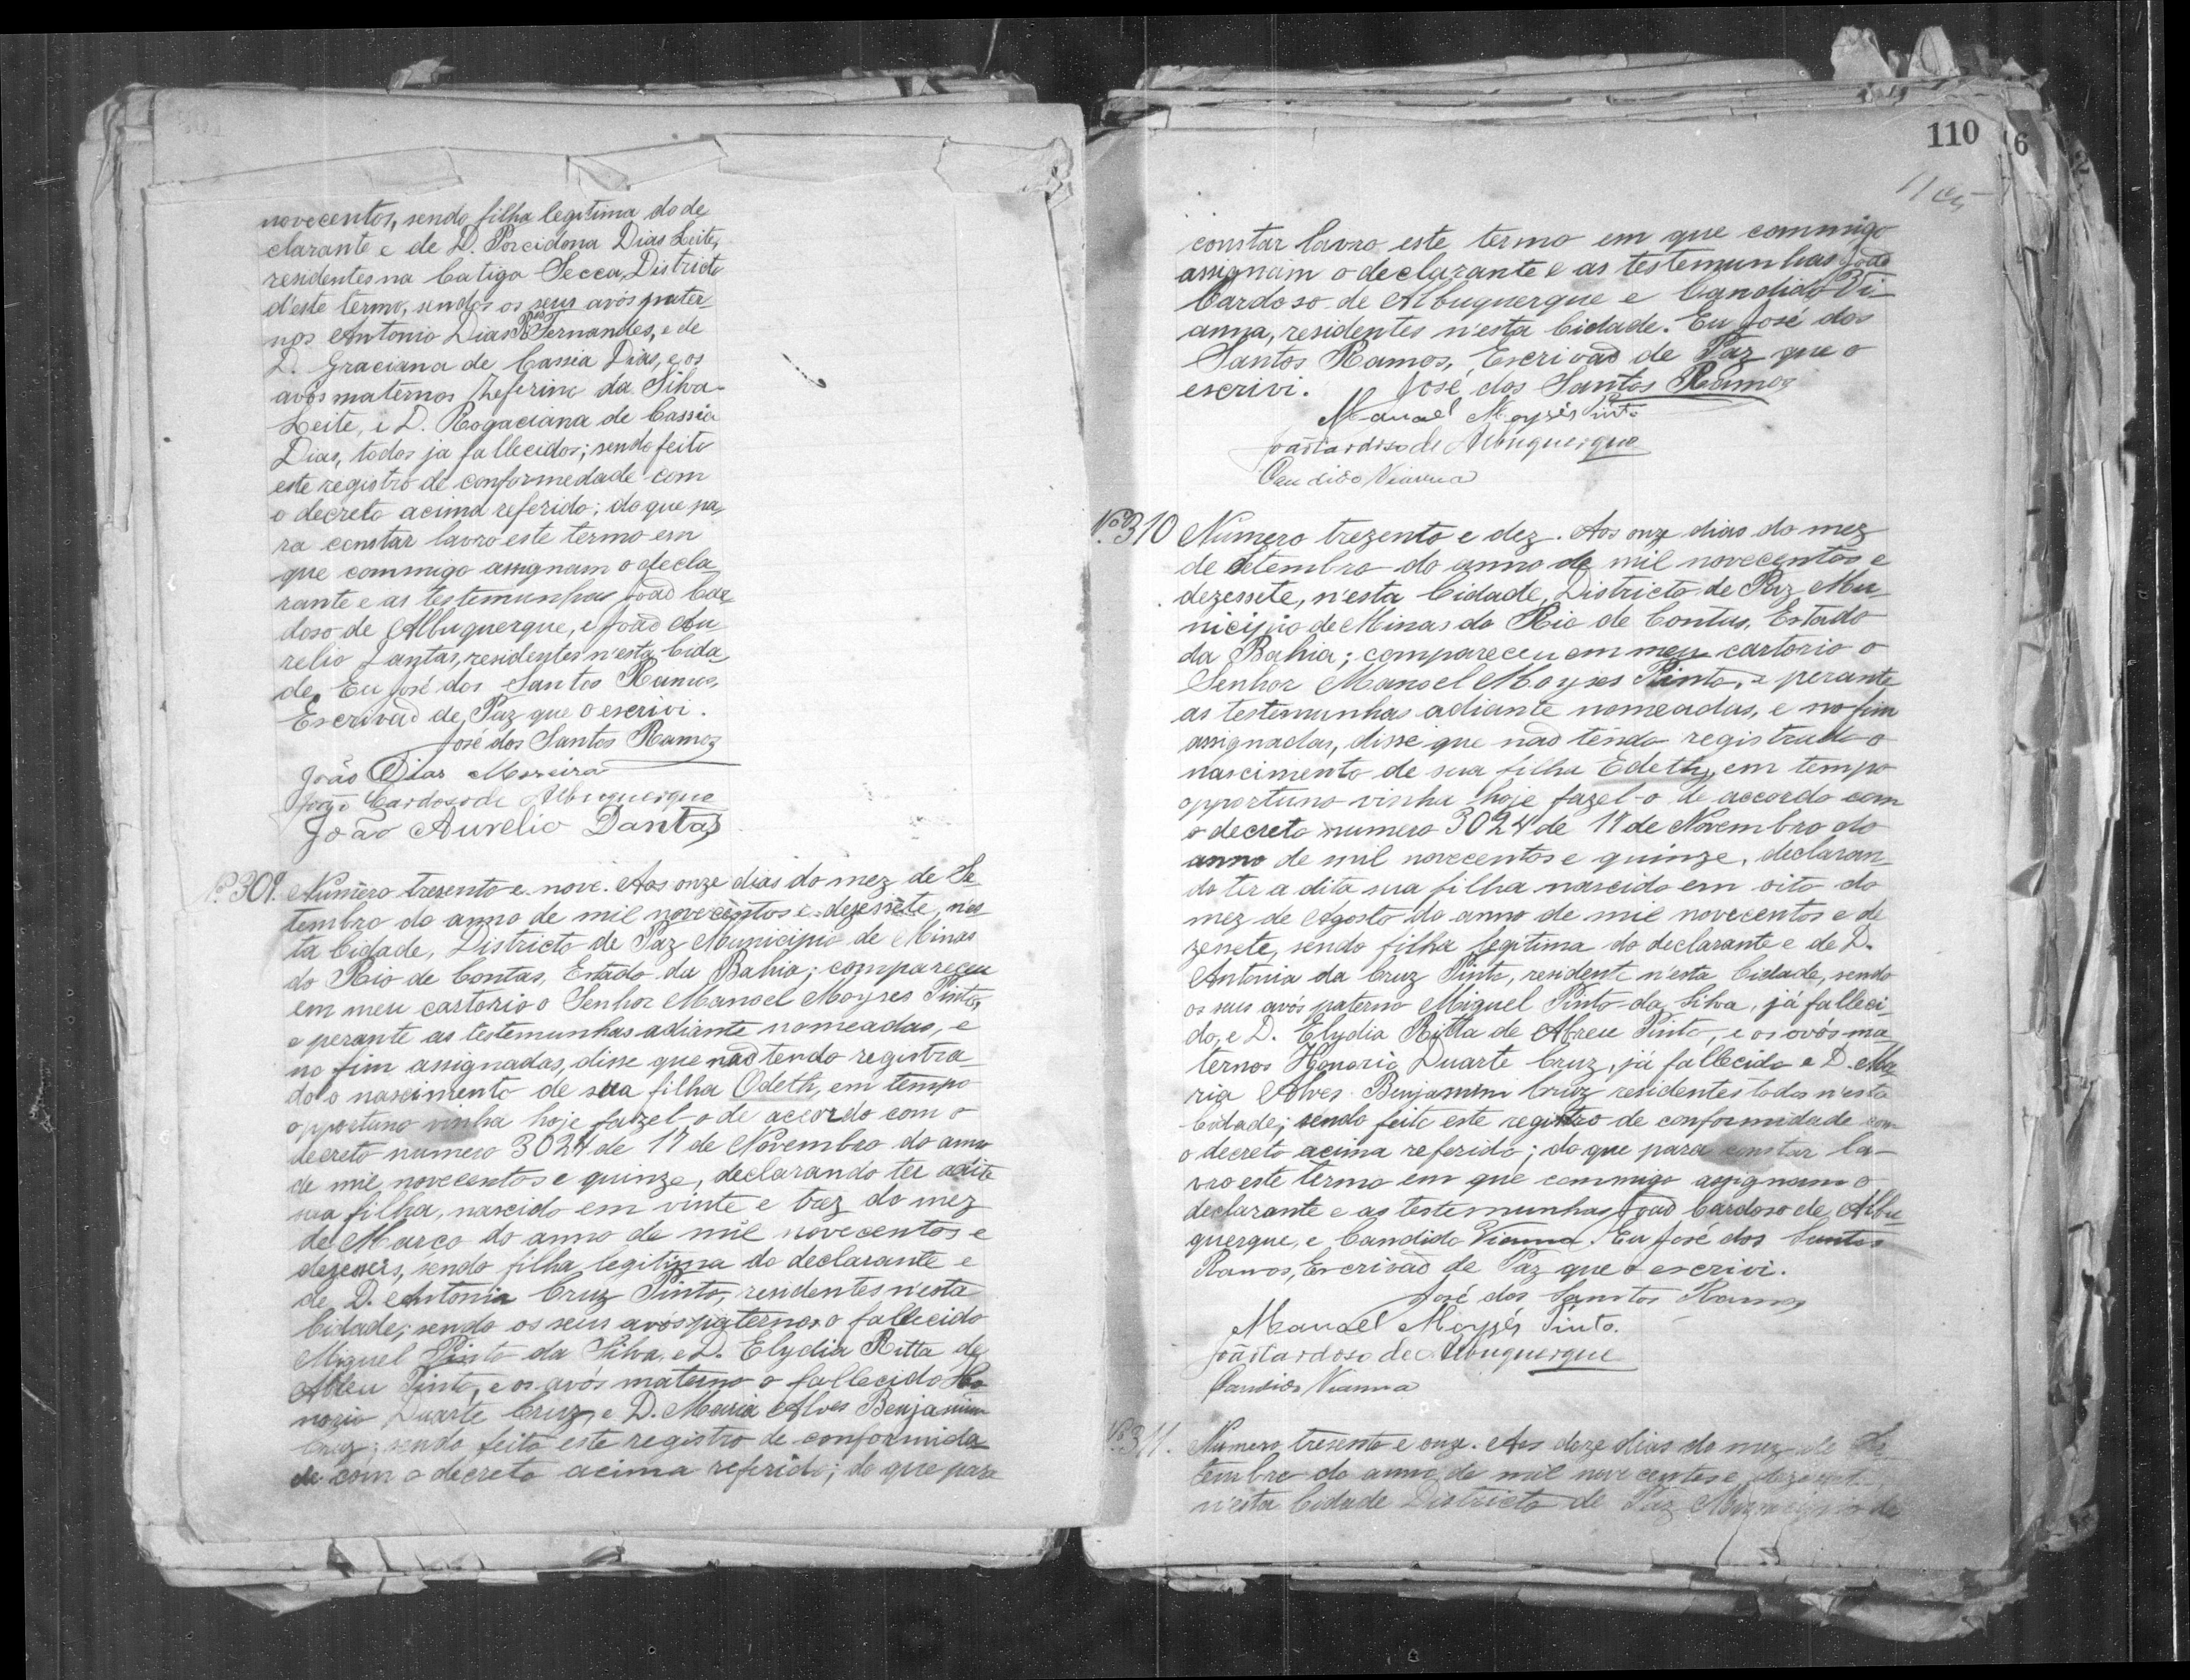 novecentos, sendo filha legitima do de
clarante e de D. Porcidona Dias Leite,
residentes na Catiga Secca, Districto
d'este termo, sendos os seus avós pater
nos Antonio Dias Fernandes, e de
D. Graciana de Cassia Dias, e os
avós maternos Zeferino da Silva
Leite, e D. Rogaciana de Cassia
Dias, todos ja fallecidos; sendo feito
este registro de conformedade com
o decreto acima referido; do que pa,
ra constar lavro este termo em
que commigo assignam o decla,
rante e as testemunhas João Car,
doso de Albuquerque, e João Au
relio Dantas, residentes n'esta Cida,
de, Eu José dos Santos Ramos,
Escrivão de Paz que o escrivi.
José dos Santos Ramos
João Dias Moreira
João Cardoso de Albuquerque
João Aurelio Dantas
Nº 309. Numero tresento e nove. Aos onze dias do mez de Se
tembro do anno de mil novecentos e dezessete, n'es
ta Cidade, Districto de Paz Municipio de Minas
do Rio de Contas, Estado da Bahia; compareceu
em meu cartorio o Senhor Manoel Moyses Pinto,
e perante as testemunhas adiante nomeadas, e
no fim assignadas, disse que não tendo registra
do o nascimento de sua filha Odeth, em tempo
opportuno vinha hoje fazel-o de accordo com o
decreto numero 3024 de 17 de Novembro do anno
de mil novecentos e quinze, declarando ter a dita
sua filha, nascido em vinte e trez do mez
de Março do anno de mil novecentos e
dezeseis, sendo filha legitima do declarante e
de D. Antonia Cruz Pinto, residentes n'esta
Cidade; sendo os seus avós paternos o fallecido
Miguel Pinto da Silva, e D. Elydia Ritta de
Abreu Pinto, e os avós materno o fallecido Ho
norio Duarte Cruz, e D. Maria Alves Benjamim
Cruz; sendo feito este registro de conformida
de com o decreto acima referido; do que para
110
6
2
constar lavro este termo em que commigo
assignam o declarante e as testemunhas João
Cardoso de Albuquerque e Candido Vi-
anna, residentes n'esta Cidade. Eu José dos
Santos Ramos, Escrivão de Paz que o
escrivi. José dos Santos Ramos
Manoel Moysés Pinto
João Cardoso de Albuquerque
Candido Vianna
Nº 310 Numero trezento e dez. Aos onze dias do mez
de Setembro do anno de mil novecentos e
dezessete, n'esta Cidade, Districto de Paz Mu-
nicipio de Minas do Rio de Contas, Estado
da Bahia; compareceu em meu cartorio o
Senhor Manoel Moyses Pinto, e perante
as testemunhas adiante nomeadas, e no fim
assignadas, disse que não tendo registrado o
nascimento de sua filha Edeth, em tempo
opportuno vinha hoje fazel-o de accordo com
o decreto numero 3024 de 17 de Novembro do
anno de mil novecentos e quinze, declaran-
do ter a dita sua filha nascido em oito do
mez de Agosto do anno de mil novecentos e de
zesete, sendo filha legitima do declarante e de D.
Antonia da Cruz Pinto, resident n'esta Cidade, sendo
os seus avós paterno Miguel Pinto da Silva, já falleci-
do, e D. Elydia Ritta de Abreu Pinto, e os avós ma-
ternos Honorio Duarte Cruz, já fallecido e D. Ma
ria Alves Benjamim Cruz residentes todos n'esta
Cidade; sendo feito este registro de conformidade com
o decreto acima referido; do que para constar la-
vro este termo em que commigo assignam o
declarante e as testemunhas João Cardoso de Albu
querque, e Candido Vianna. Eu José dos Santos
Ramos, Escrivão de Paz que o escrivi.
José dos Santos Ramos
Manoel Moysés Pinto.
João Cardoso de Albuquerque
Candido Vianna
Nº 311. Numero tresento e onze. Aos doze dias do mez de Se
tembro do anno de mil novecentos e dezesete
n'esta Cidade Districto de Paz Municipio de